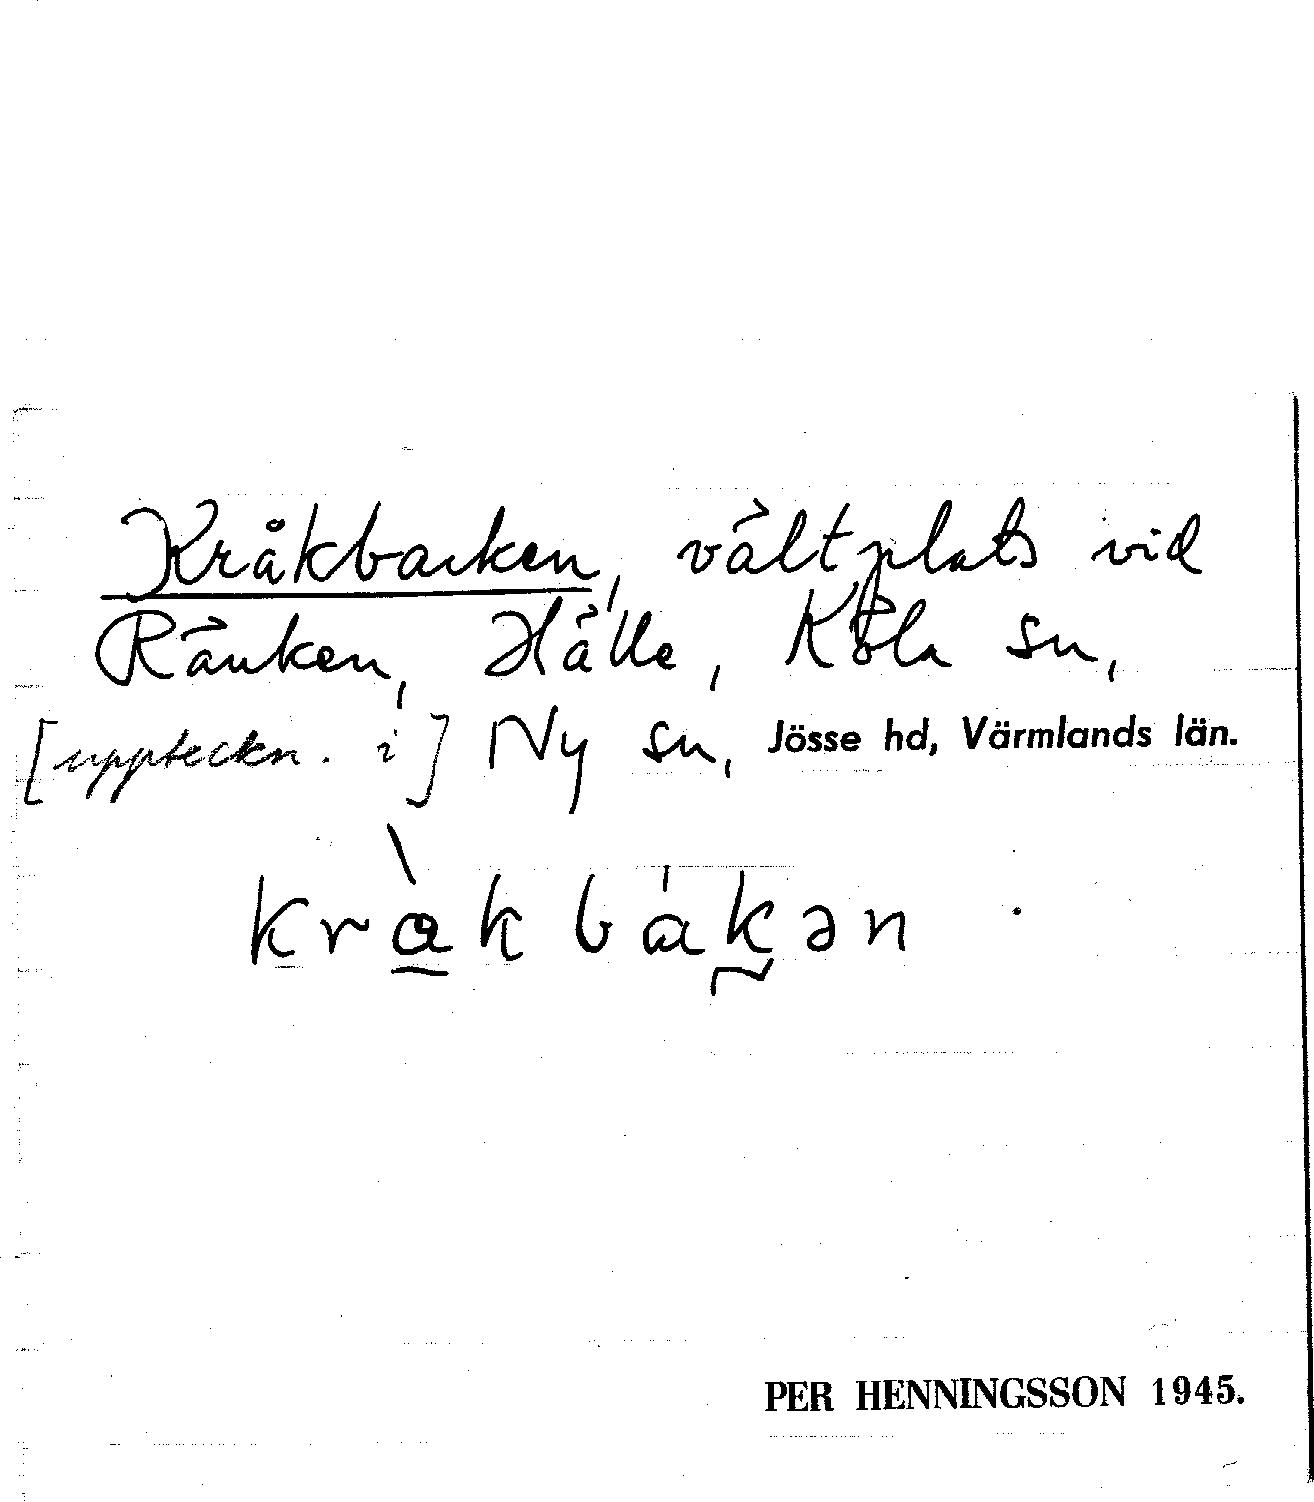 Kråkbacken, vältplats vid
Ränken, Hälle, Köla sn,
[uppteckn. i] Ny sn, Jösse hd, Värmlands län.
kràkbákən
PER HENNINGSSON 1945.